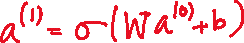 a⁽¹⁾ = σ(Wa⁽⁰⁾+b)